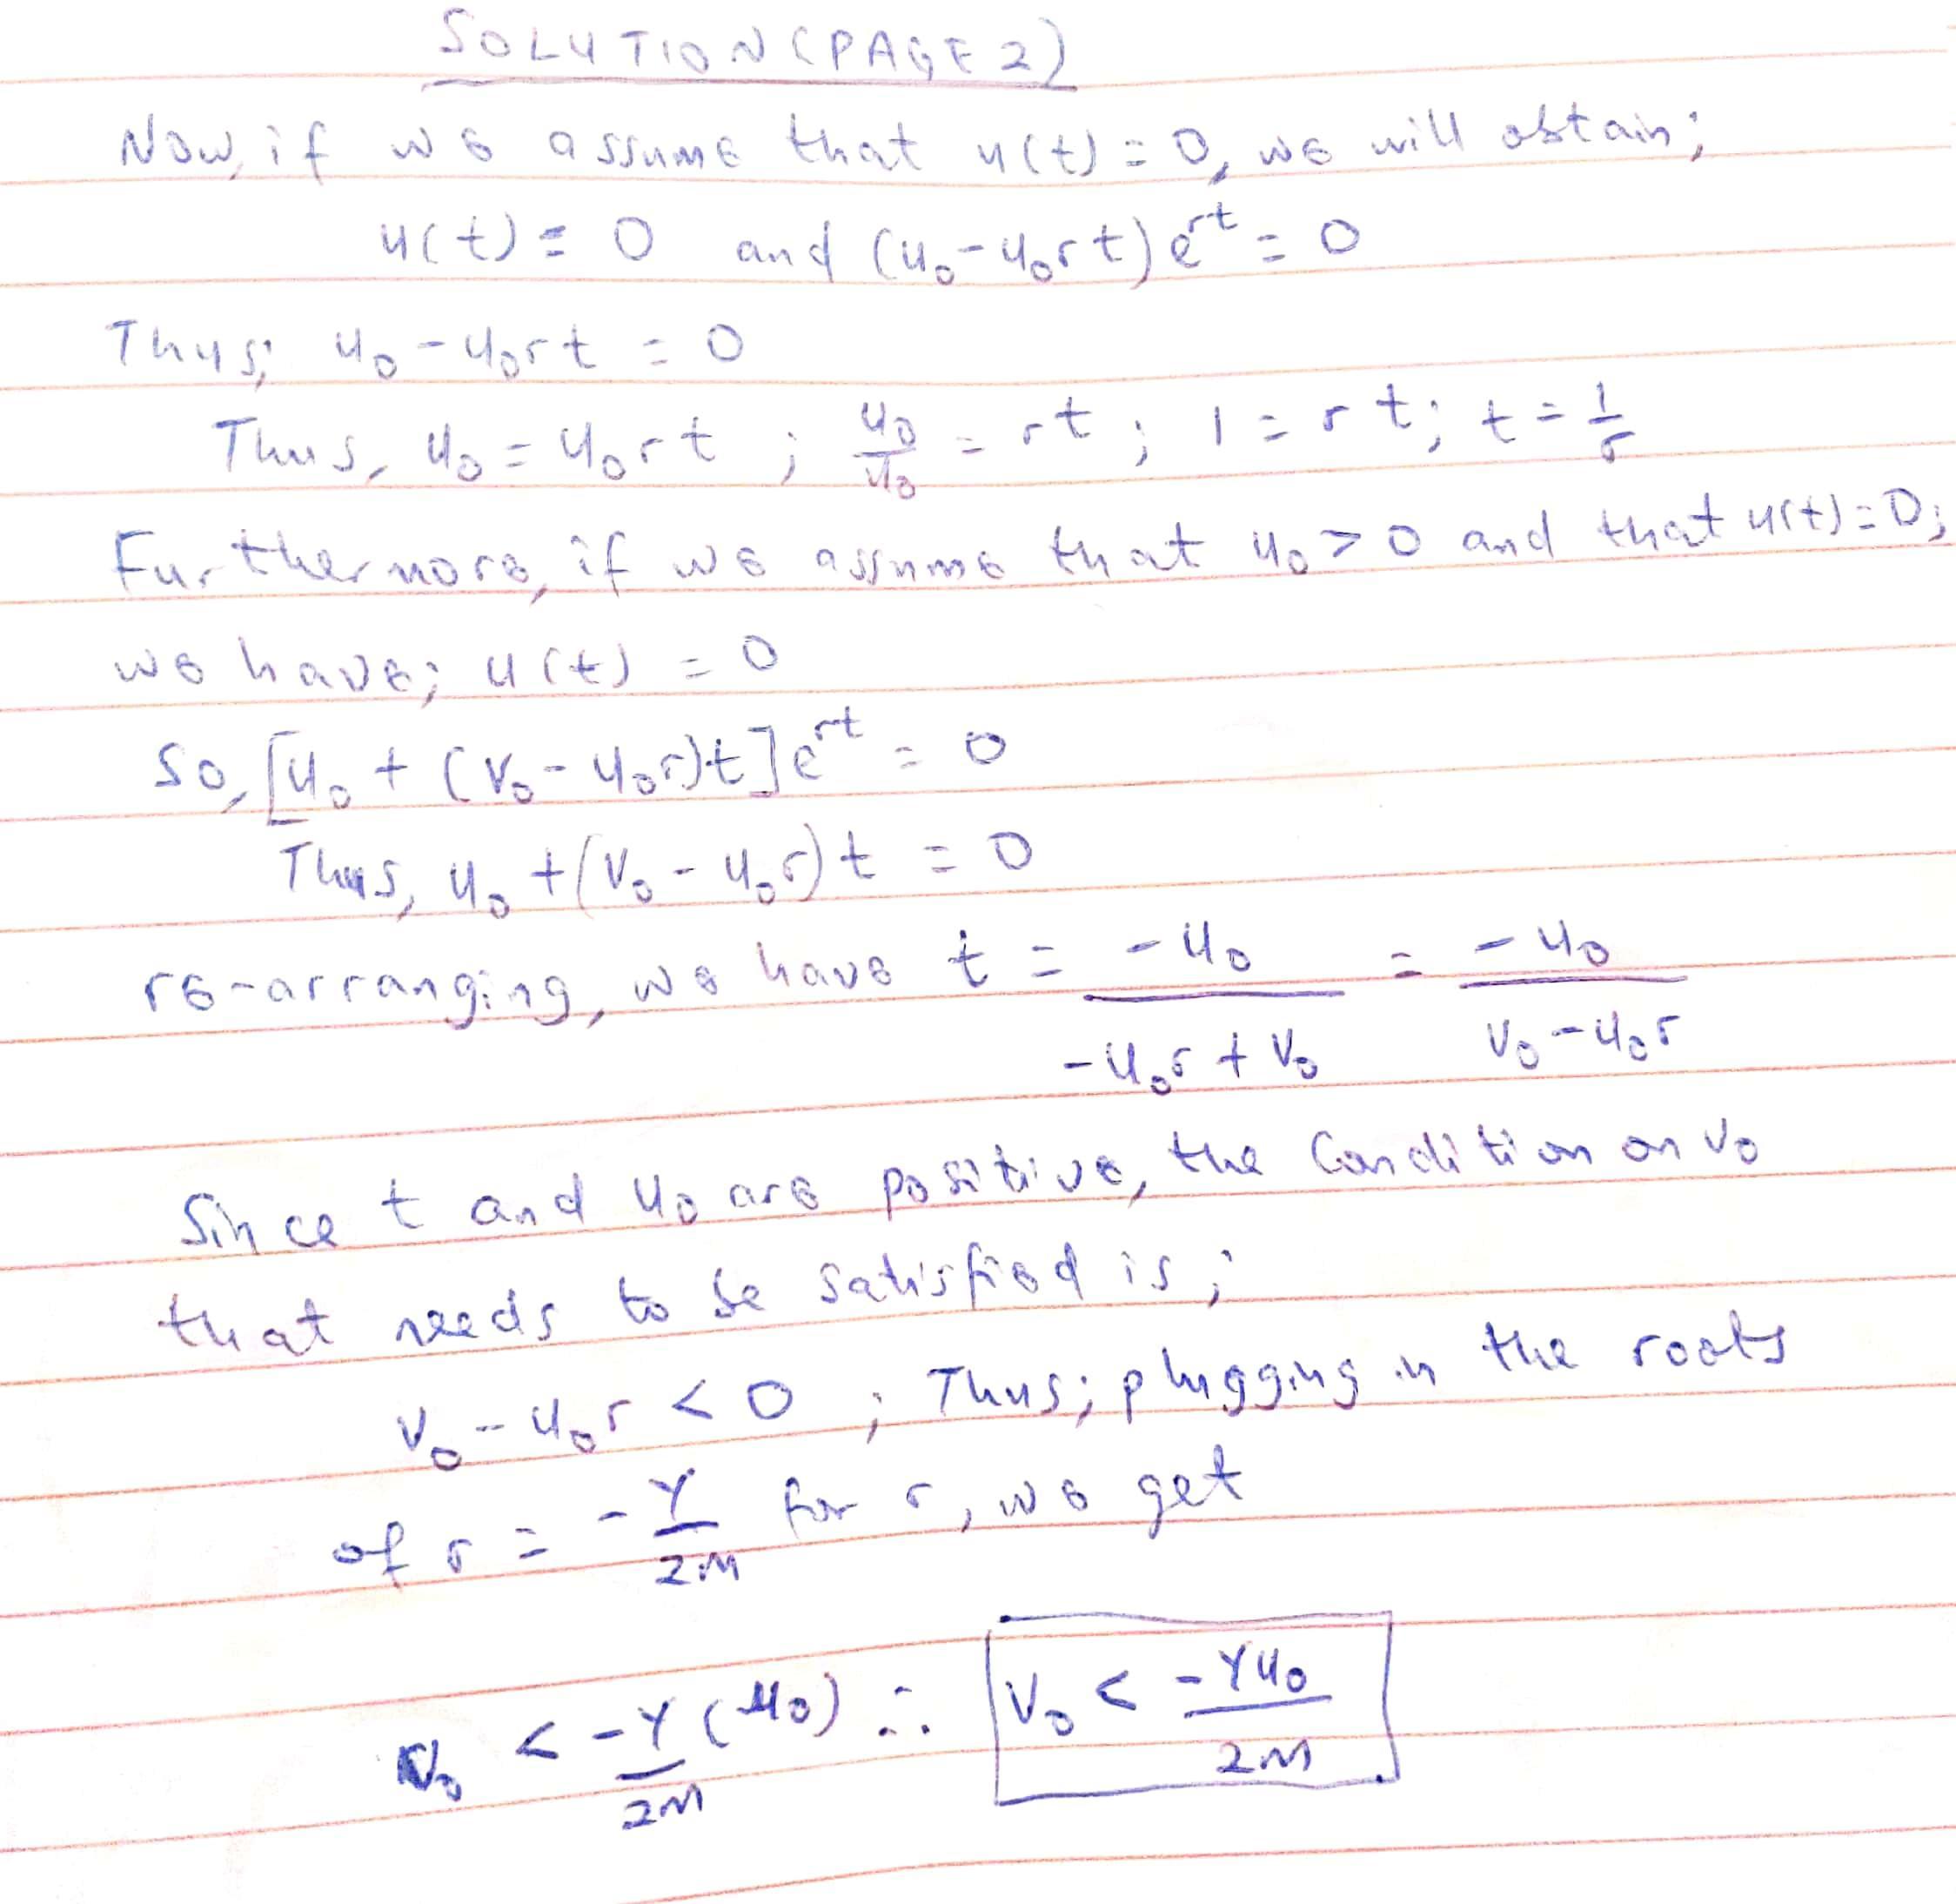 SOLUTION (PAGE 2)
Now, if we assume that u(t) = 0, we will obtain;
u(t) = 0 and (u₀ - u₀rt) e^rt = 0
Thus; u₀ - u₀rt = 0
Thus, u₀ = u₀rt ; u₀/u₀ = rt ; 1 = rt; t = 1/r
Furthermore, if we assume that u₀ > 0 and that u(t) = 0;
we have; u(t) = 0
So, [u₀ + (v₀ - u₀r)t] e^rt = 0
Thus, u₀ + (v₀ - u₀r)t = 0
re-arranging, we have t = -u₀/(-u₀r + v₀) = -u₀/(v₀ - u₀r)
Since t and u₀ are positive, the Condition on v₀
that needs to be satisfied is;
v₀ - u₀r < 0 ; Thus; plugging in the roots
of r = -γ/2m for r, we get
v₀ < -γ/2m (u₀) ∴ v₀ < -γu₀/2m